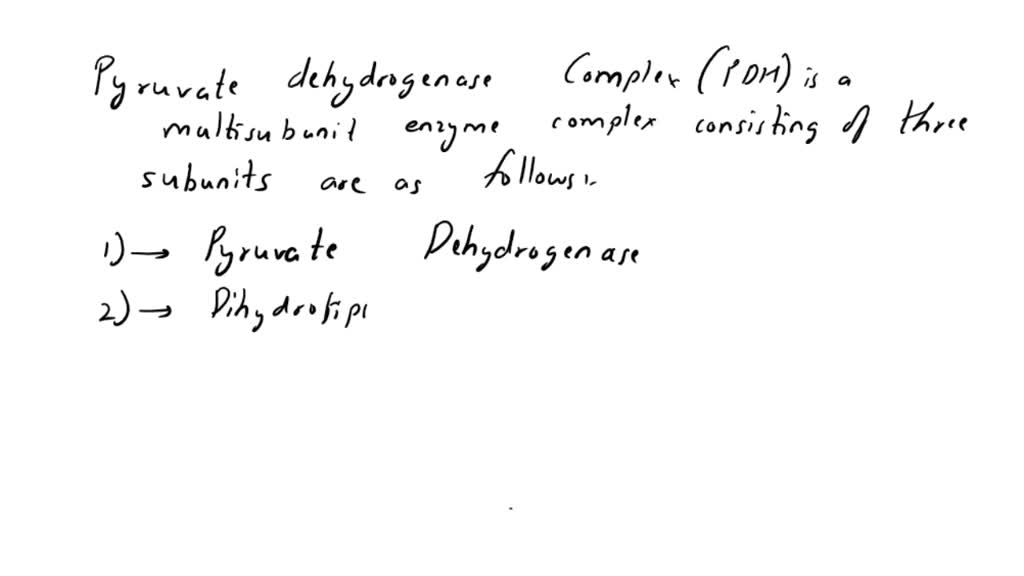 Pyruvate dehydrogenase Complex (PDH) is a
multisubunit enzyme complex consisting of three
subunits are as follows:
1) → Pyruvate Dehydrogenase
2) → Dihydrolip